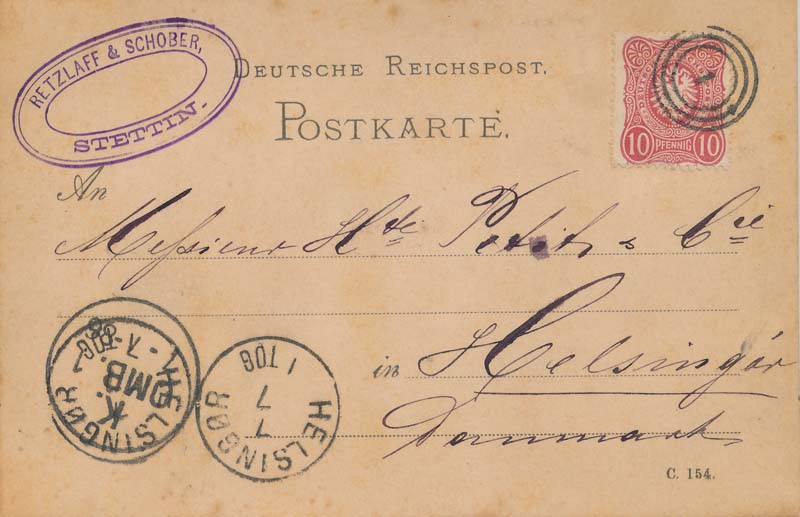 RETZLAFF & SCHOBER,
STETTIN.
DEUTSCHE REICHSPOST.
POSTKARTE.
10 PFENNIG 10
1
An
Messieurs Hte Petit & Cie
in Helsingör
Danmark
HELSINGØR
7
7
1 TOG
HELSINGØR
K.
OMB.
C. 154.